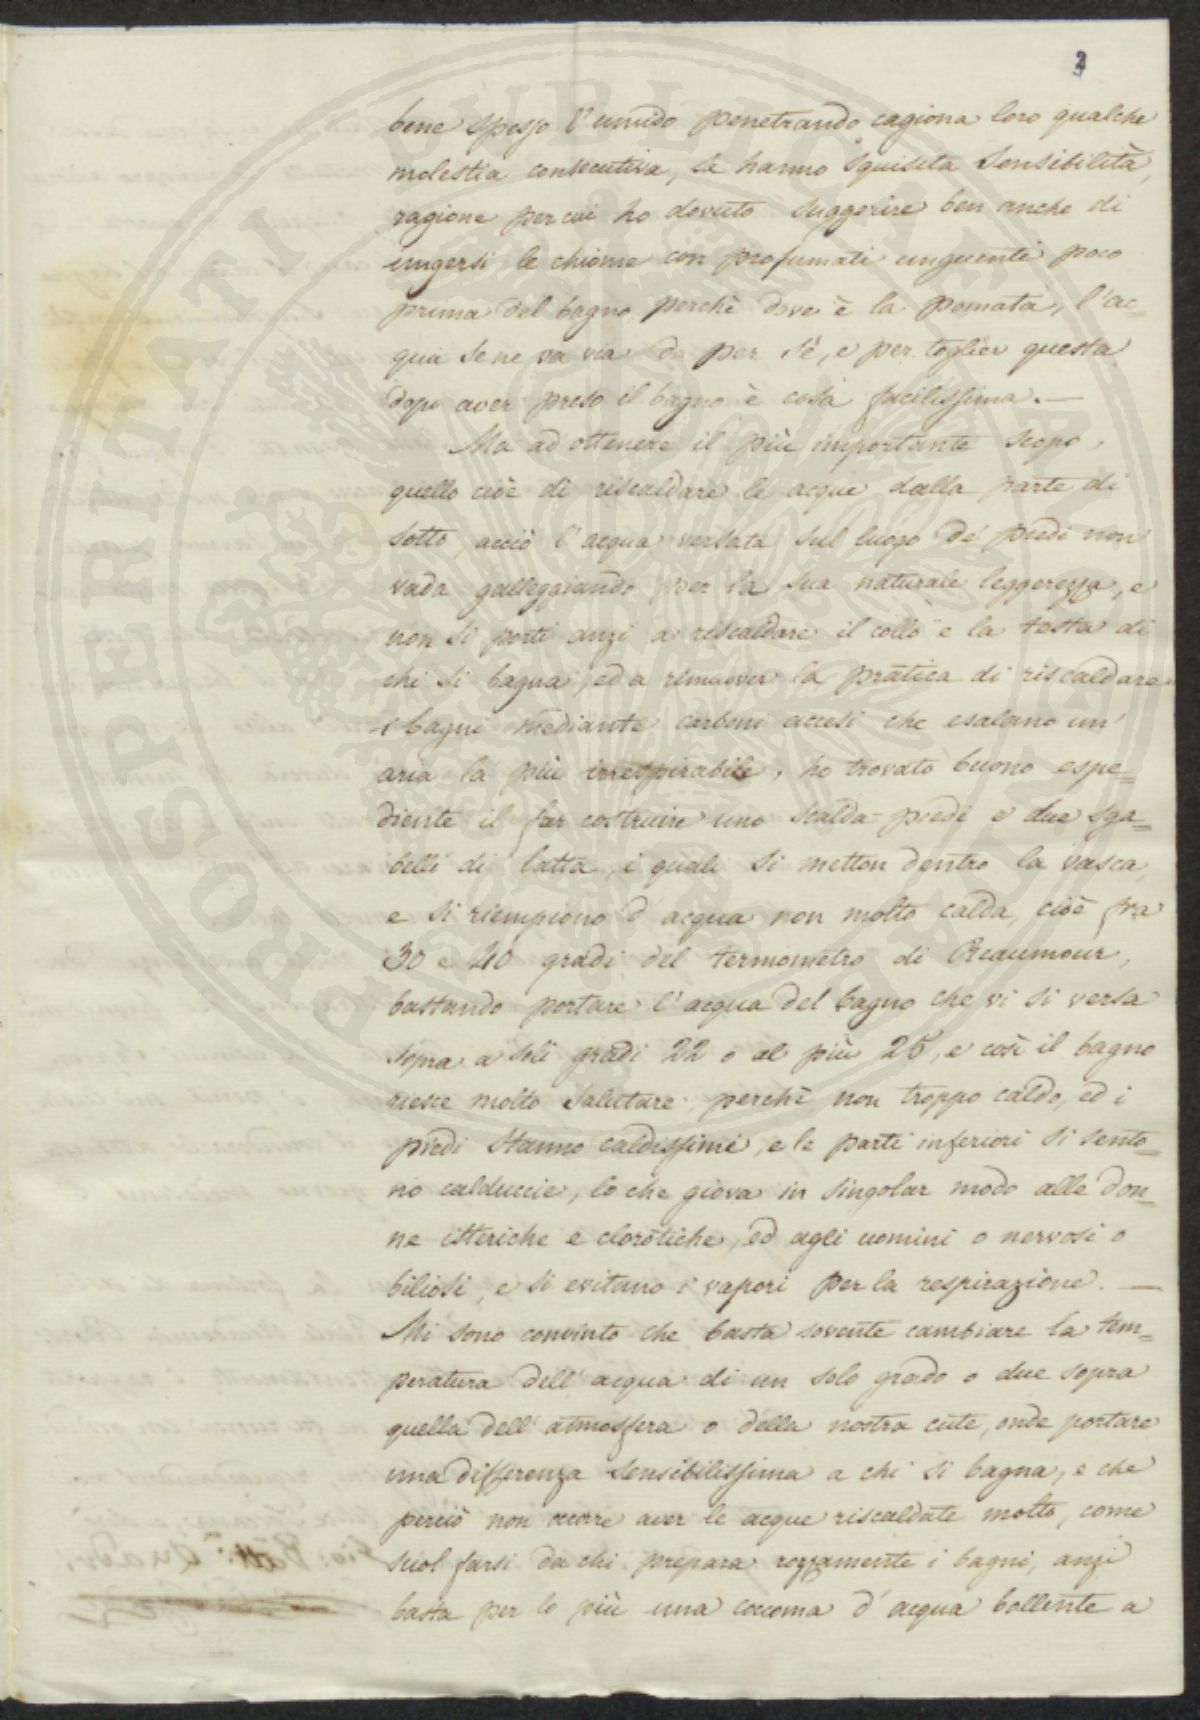 3
bene spesso l'umido penetrando cagiona loro qualche
molestia consecutiva, se hanno squisita sensibilità,
ragione per cui ho dovuto suggerire ben anche di
ungersi le chiome con profumati unguenti poco
prima del bagno perchè dove è la pomata, l'ac=
qua se ne va via da per sè, e per toglier questa
dopo aver preso il bagno è cosa facilissima. —
Ma ad ottenere il più importante scopo,
quello cioè di riscaldare le acque dalla parte di
sotto, acciò l'acqua versata sul luogo de' piedi non
vada galleggiando per la sua naturale leggerezza, e
non si porti anzi a riscaldare il collo e la testa di
chi si bagna, ed a rimuover la pratica di riscaldare
i bagni mediante carboni accesi che esalano un'
aria la più irrespirabile, ho trovato buono espe=
diente il far costruire uno scalda-piedi e due sga=
belli di latta, i quali si metton dentro la vasca,
e si riempiono d'acqua non molto calda, cioè fra
30 e 40 gradi del termometro di Reaumour,
bastando portare l'acqua del bagno che vi si versa
sopra a soli gradi 22 o al più 26, e così il bagno
riesce molto salutare perchè non troppo caldo, ed i
piedi stanno caldissimi, e le parti inferiori si sento=
no calduccie, lo che giova in singolar modo alle don=
ne itteriche e clorotiche, ed agli uomini o nervosi o
biliosi, e si evitano i vapori per la respirazione. —
Mi sono convinto che basta sovente cambiare la tem=
peratura dell'acqua di un solo grado o due sopra
quella dell'atmosfera o della nostra cute, onde portare
una differenza sensibilissima a chi si bagna, e che
perciò non occorre aver le acque riscaldate molto, come
suol farsi da chi prepara rozzamente i bagni, anzi
basta per lo più una coccoma d'acqua bollente a
PROSPERITATI PVBLICAE